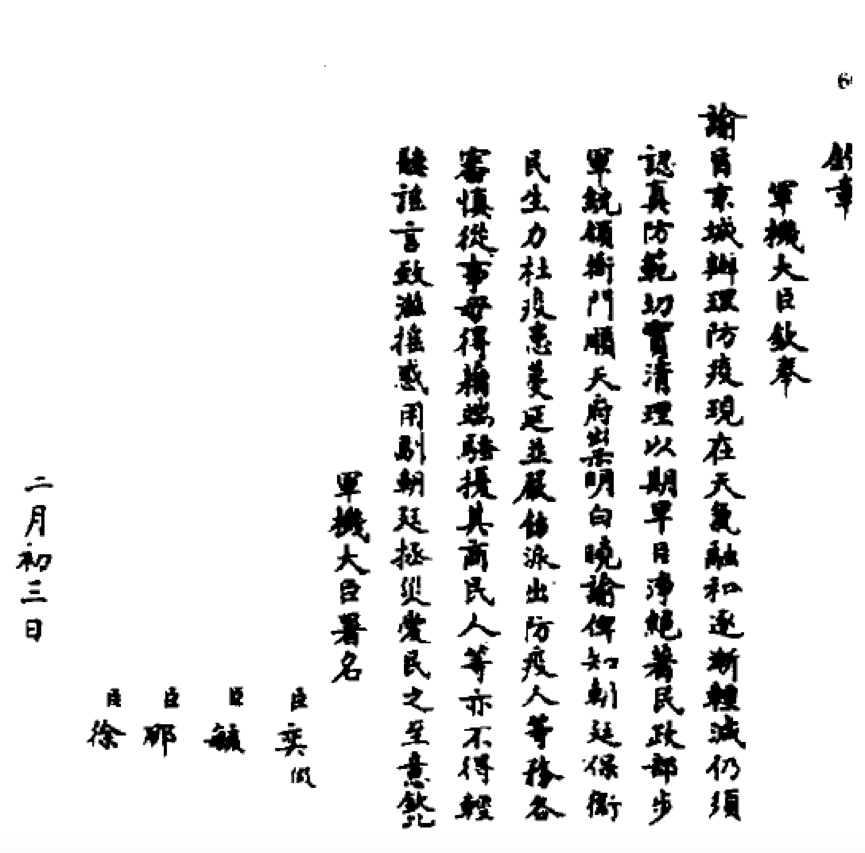 欽奉
軍機大臣欽奉
諭旨京城辦理防疫現在天氣融和逐漸輕減仍須
認真防範切實清理以期早日淨絕著民政部步
軍統領衙門順天府出示明白曉諭俾知朝廷保衛
民生力杜疫患蔓延並嚴飭派出防疫人等務各
審慎從事毋得藉端騷擾其商民人等亦不得輕
聽謠言致滋搖惑用副朝廷拯災愛民之至意欽此
軍機大臣署名
臣奕假
臣毓
臣那
臣徐
二月初三日